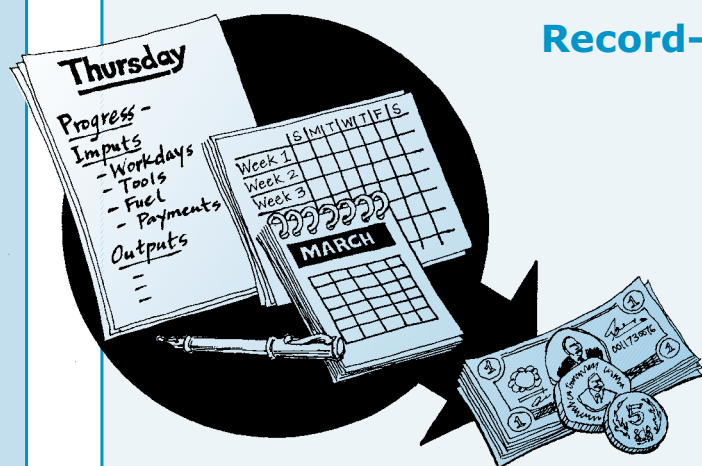 Record-
Thursday
Progress -
Imputs
- Workdays
- Tools
- Fuel
- Payments
Outputs
-
-
-
S M T W T F S
Week 1
Week 2
Week 3
MARCH
1
1
1
1
5